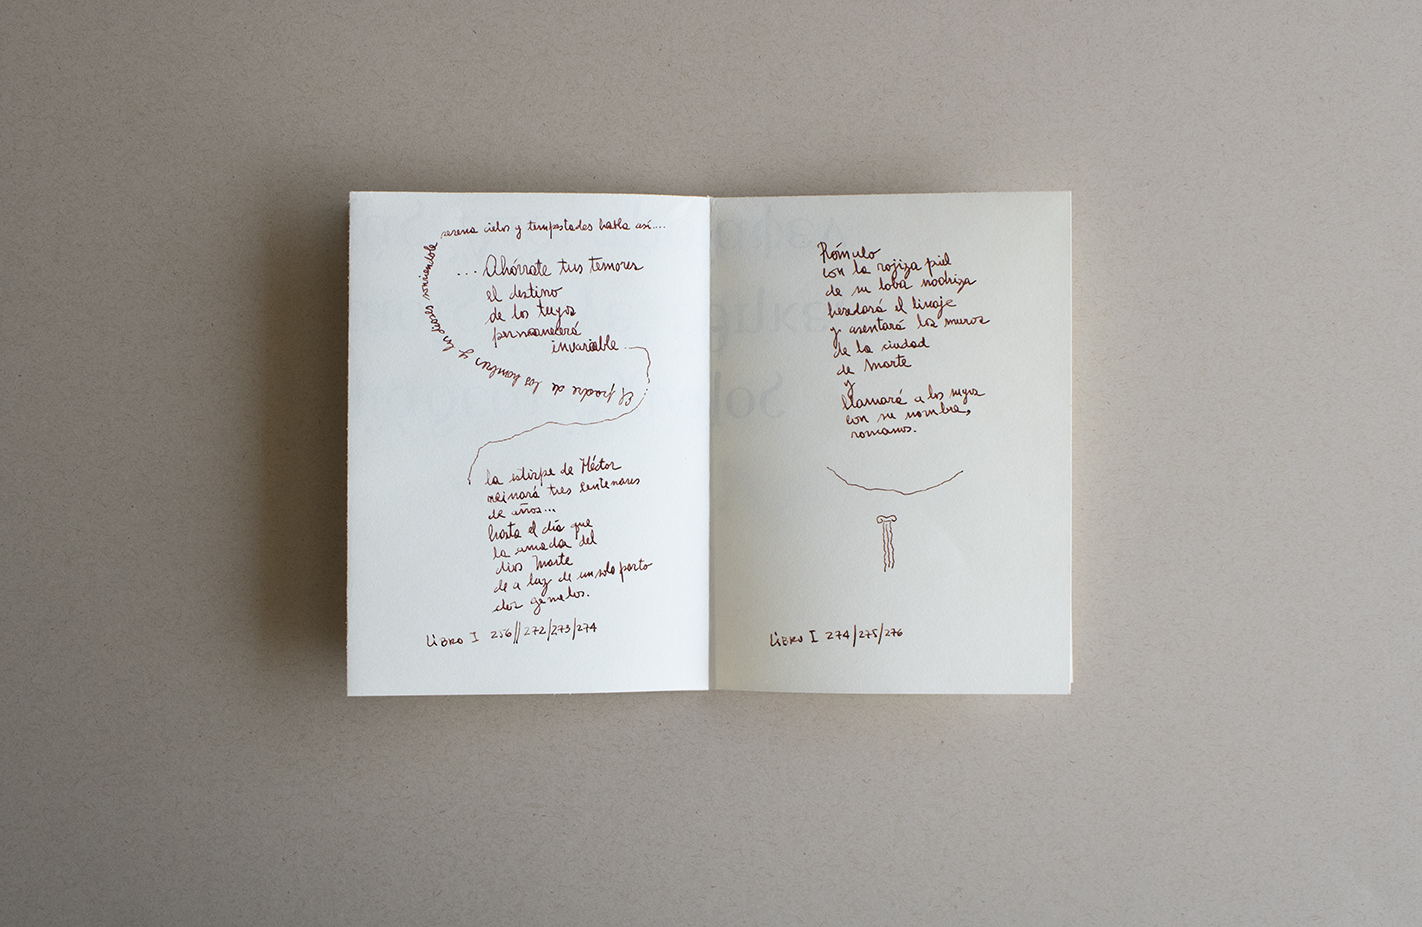 El padre de los hombres y los dioses sonriendole
serena cielos y tempestades habla así....
...Ahórrate tus temores
el destino
de los tuyos
permanecerá
invariable
la estirpe de Héctor
reinará tres centenares
de años...
hasta el día que
la amada del
dios Marte
de a luz de un solo parto
dos gemelos.
LIBRO I 256//272/273/274
Rómulo
con la rojiza piel
de su loba nodriza
heredará el linaje
y asentará los muros
de la ciudad
de Marte
y
llamará a los suyos
con su nombre,
romanos.
LIBRO I 274/275/276